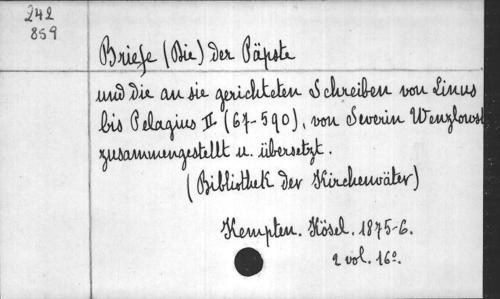 242
859
Briefe (Die) der Päpste
und die an sie gerichteten Schreiben von Linus
bis Pelagius II (67-590), von Severin Wenzlowsk
zusammengestellt u. übersetzt.
(Bibliothek der Kirchenväter)
Kempten. Kösel. 1875-6.
2 vol. 16º.